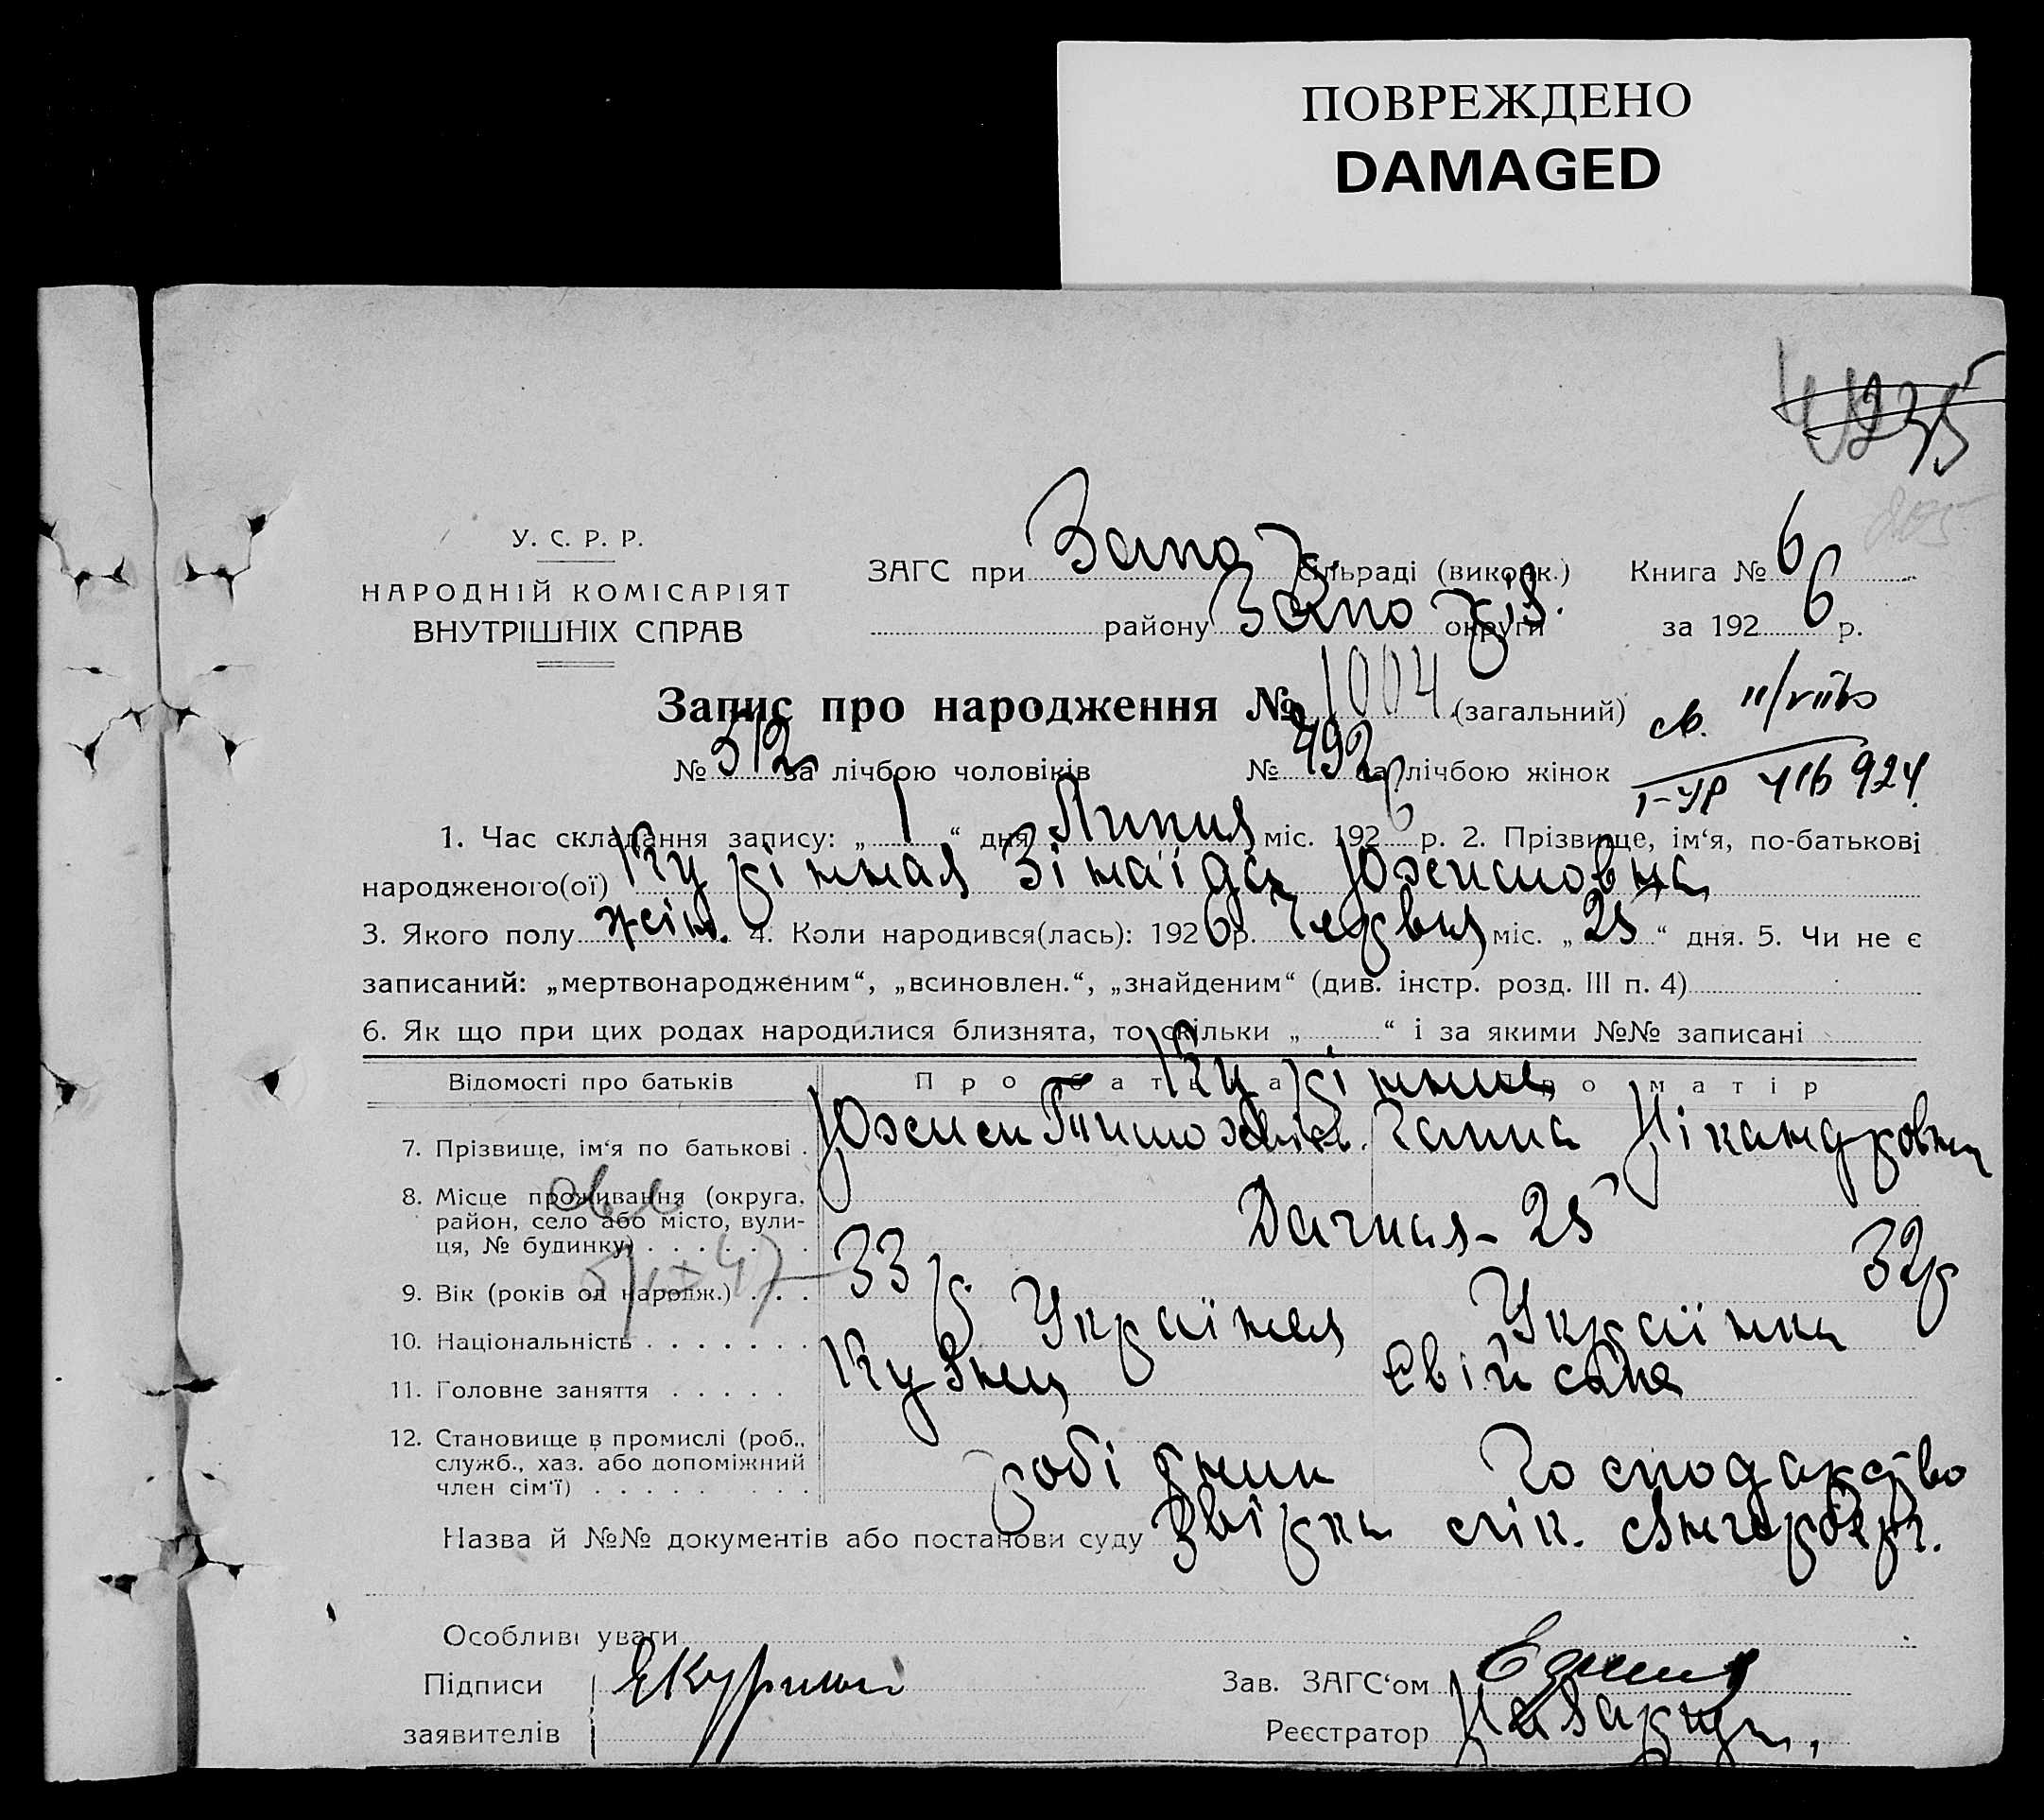 ПОВРЕЖДЕНО
DAMAGED
У. С. Р. Р.
НАРОДНІЙ КОМІСАРІЯТ
ВНУТРІШНІХ СПРАВ
ЗАГС при Запо сільраді (виконк.) Книга № 6
району Запоріз. округи за 1926 р.
Запис про народження № 1004 (загальний)
№ 512 за лічбою чоловіків № 492 за лічбою жінок
1. Час складання запису: „1“ дня Липня міс. 1926 р. 2. Прізвище, ім‘я, по-батькові
народженого(ої) Курінная Зінаїда Юхимовна
3. Якого полу жін. 4. Коли народився(лась): 1926 р. Червня міс. „25“ дня. 5. Чи не є
записаний: „мертвонародженим“, „всиновлен.“, „знайденим“ (див. інстр. розд. III п. 4)
6. Як що при цих родах народилися близнята, то скільки „ “ і за якими №№ записані
Відомості про батьків Про батька Про матір
7. Прізвище, ім‘я по батькові Юхим Ганна Нікандровна
8. Місце проживання (округа, район, село або місто, вулиця, № будинку) Дачная - 25
9. Вік (років од народж.) 33 р. 32 р
10. Національність Українец Українка
11. Головне заняття Кузнец
12. Становище в промислі (роб., служб., хаз. або допоміжний член сім‘ї) робітник Господарство
Назва й №№ документів або постанови суду
Особливі уваги
Підписи
заявителів
Зав. ЗАГС‘ом
Реєстратор